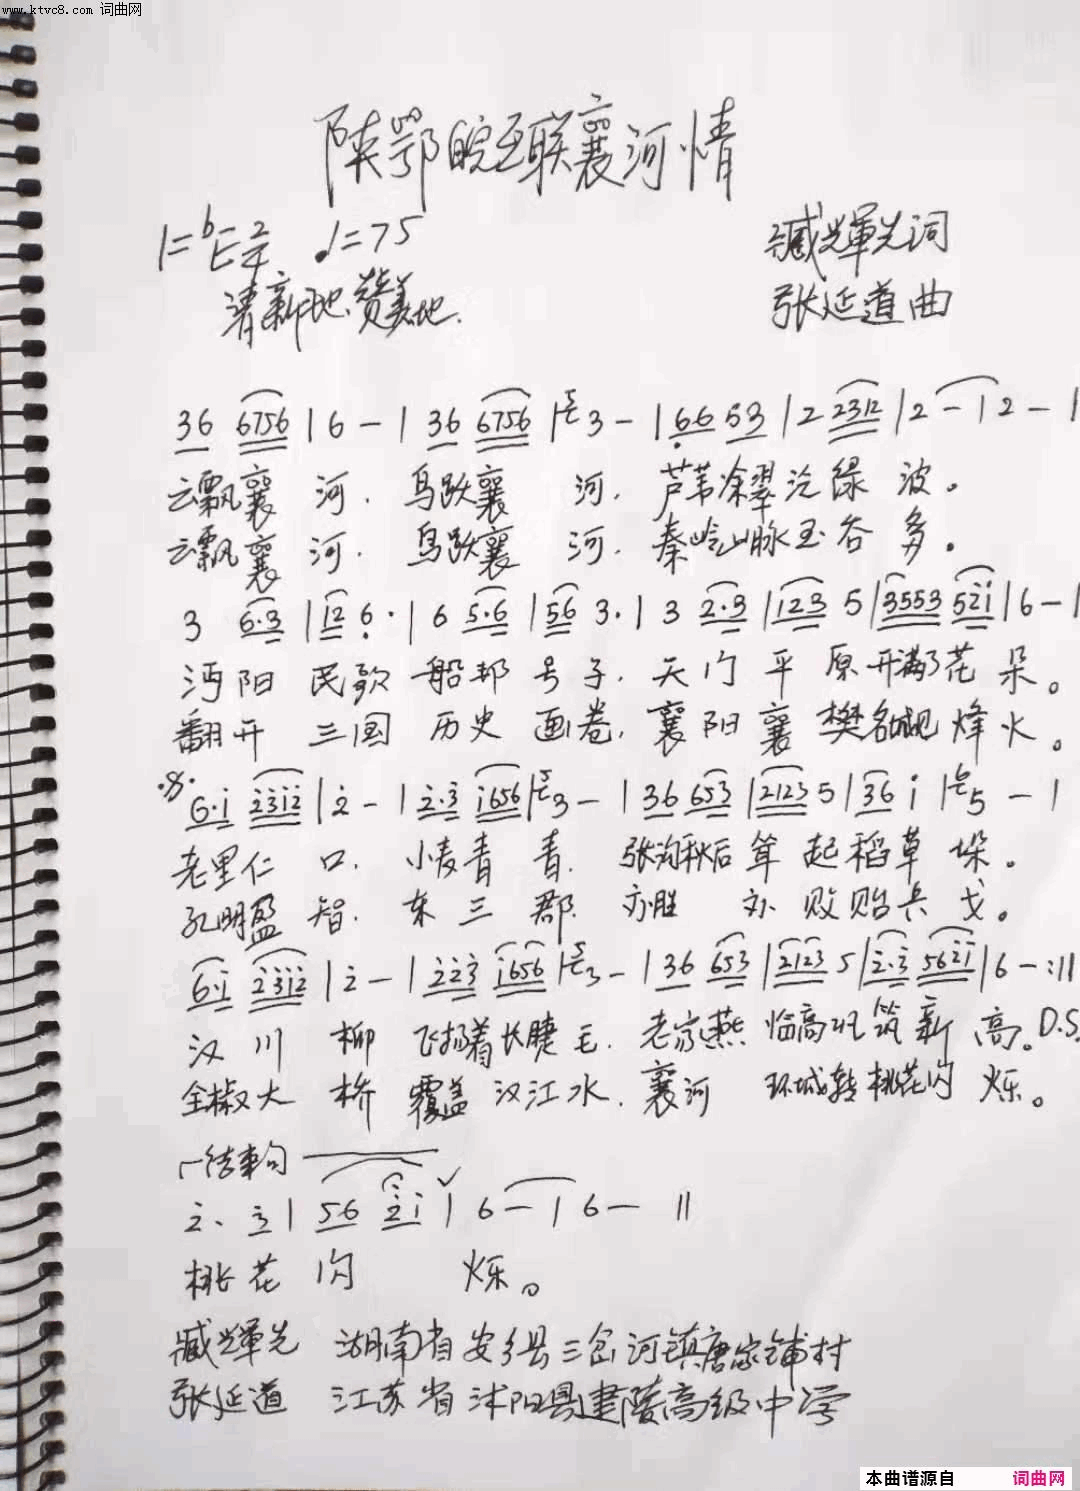 www.ktvc8.com 词曲网
陕鄂皖互联襄河情
1=bE 2/4 ♩=75 臧輝光词
清新地、赞美地. 张延道曲
36 6756 | 6 - | 36 6756 | 3 - | 66 53 | 2 2312 | 2 - | 2 - |
云飘襄河. 鸟跃襄河. 芦苇涂翠泛绿波。
云飘襄河. 鸟跃襄河. 秦岭山脉玉谷多.
3 6·3 | 12 6· | 6 5·6 | 56 3· | 3 2·3 | 123 5 | 3553 52i | 6 - |
沔阳民歌船邦号子. 天门平原开满了花朵。
翻开三国历史画卷. 襄阳襄樊名城烽火。
6·i 2312 | 2 - | 2·3 i656 | 3 - | 36 653 | 2123 5 | 36 i | 5 - |
老里仁口. 小麦青青. 张沟秋后耸起稻草垛。
孔明盈智. 东三郡. 亦胜亦败贻兵戈。
6·i 2312 | 2 - | 223 i656 | 3 - | 36 653 | 2123 5 | 2·3 562i | 6 - :||
汉川柳飞扬着长睫毛. 老家燕临高筑新高。D.S.
全椒大桥覆盖汉江水. 襄河环城转桃花闪烁。
结束句
2· 3 | 56 2i | 6 - | 6 - ||
桃花闪烁。
臧輝光 湖南省安乡县三岔河镇唐家铺村
张延道 江苏省沭阳县建陵高级中学
本曲谱源自 词曲网